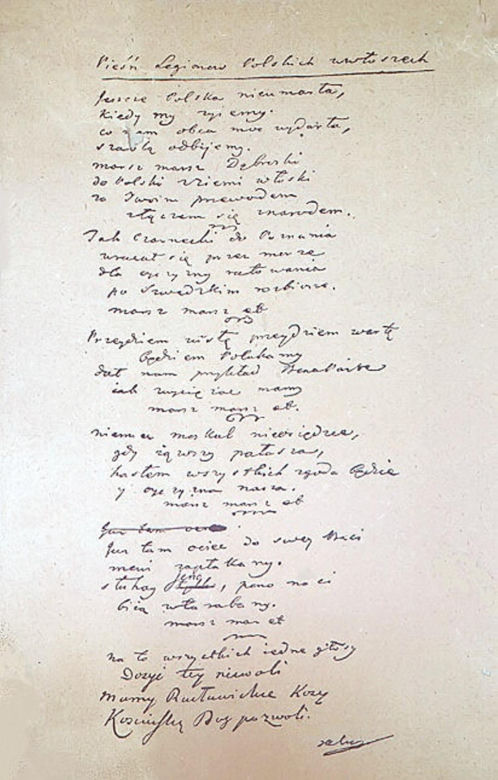 Pieśń Legionow Polskich wewłoszech
Jeszcze Polska nieumarła,
kiedy my zyiemy.
co nam obca moc wydarła,
szablą odbijemy.
marsz marsz Dąbroski
do Polski zziemi włoski
za Twoim przewodem
złączem się znarodem.
Jak Czarnecki do Poznania
wracał się przez morze
dla oyczyzny ratowania
po Szwedzkim rozbiorze.
marsz marsz etc
Przeydziem wisłę przeydziem wartę
będziem Polakamy
dał nam przykład Bonaparte
iak zwycięzac mamy
marsz marsz etc.
niemiec moskal nieosiędzie,
gdy iąwszy pałasza,
hasłem wszystkich zgoda będzie
y oyczyzna nasza.
marsz marsz etc
Juz tam ociec
Juz tam ociec do swey Basi
mówi zapłakany.
słuchay ieno, pono nasi
biią wtarabany.
marsz marsz etc
na to wszystkich iedne głosy
Dosyć tey niewoli
mamy Racławickie Kosy
Kosciuszkę Bog pozwoli.